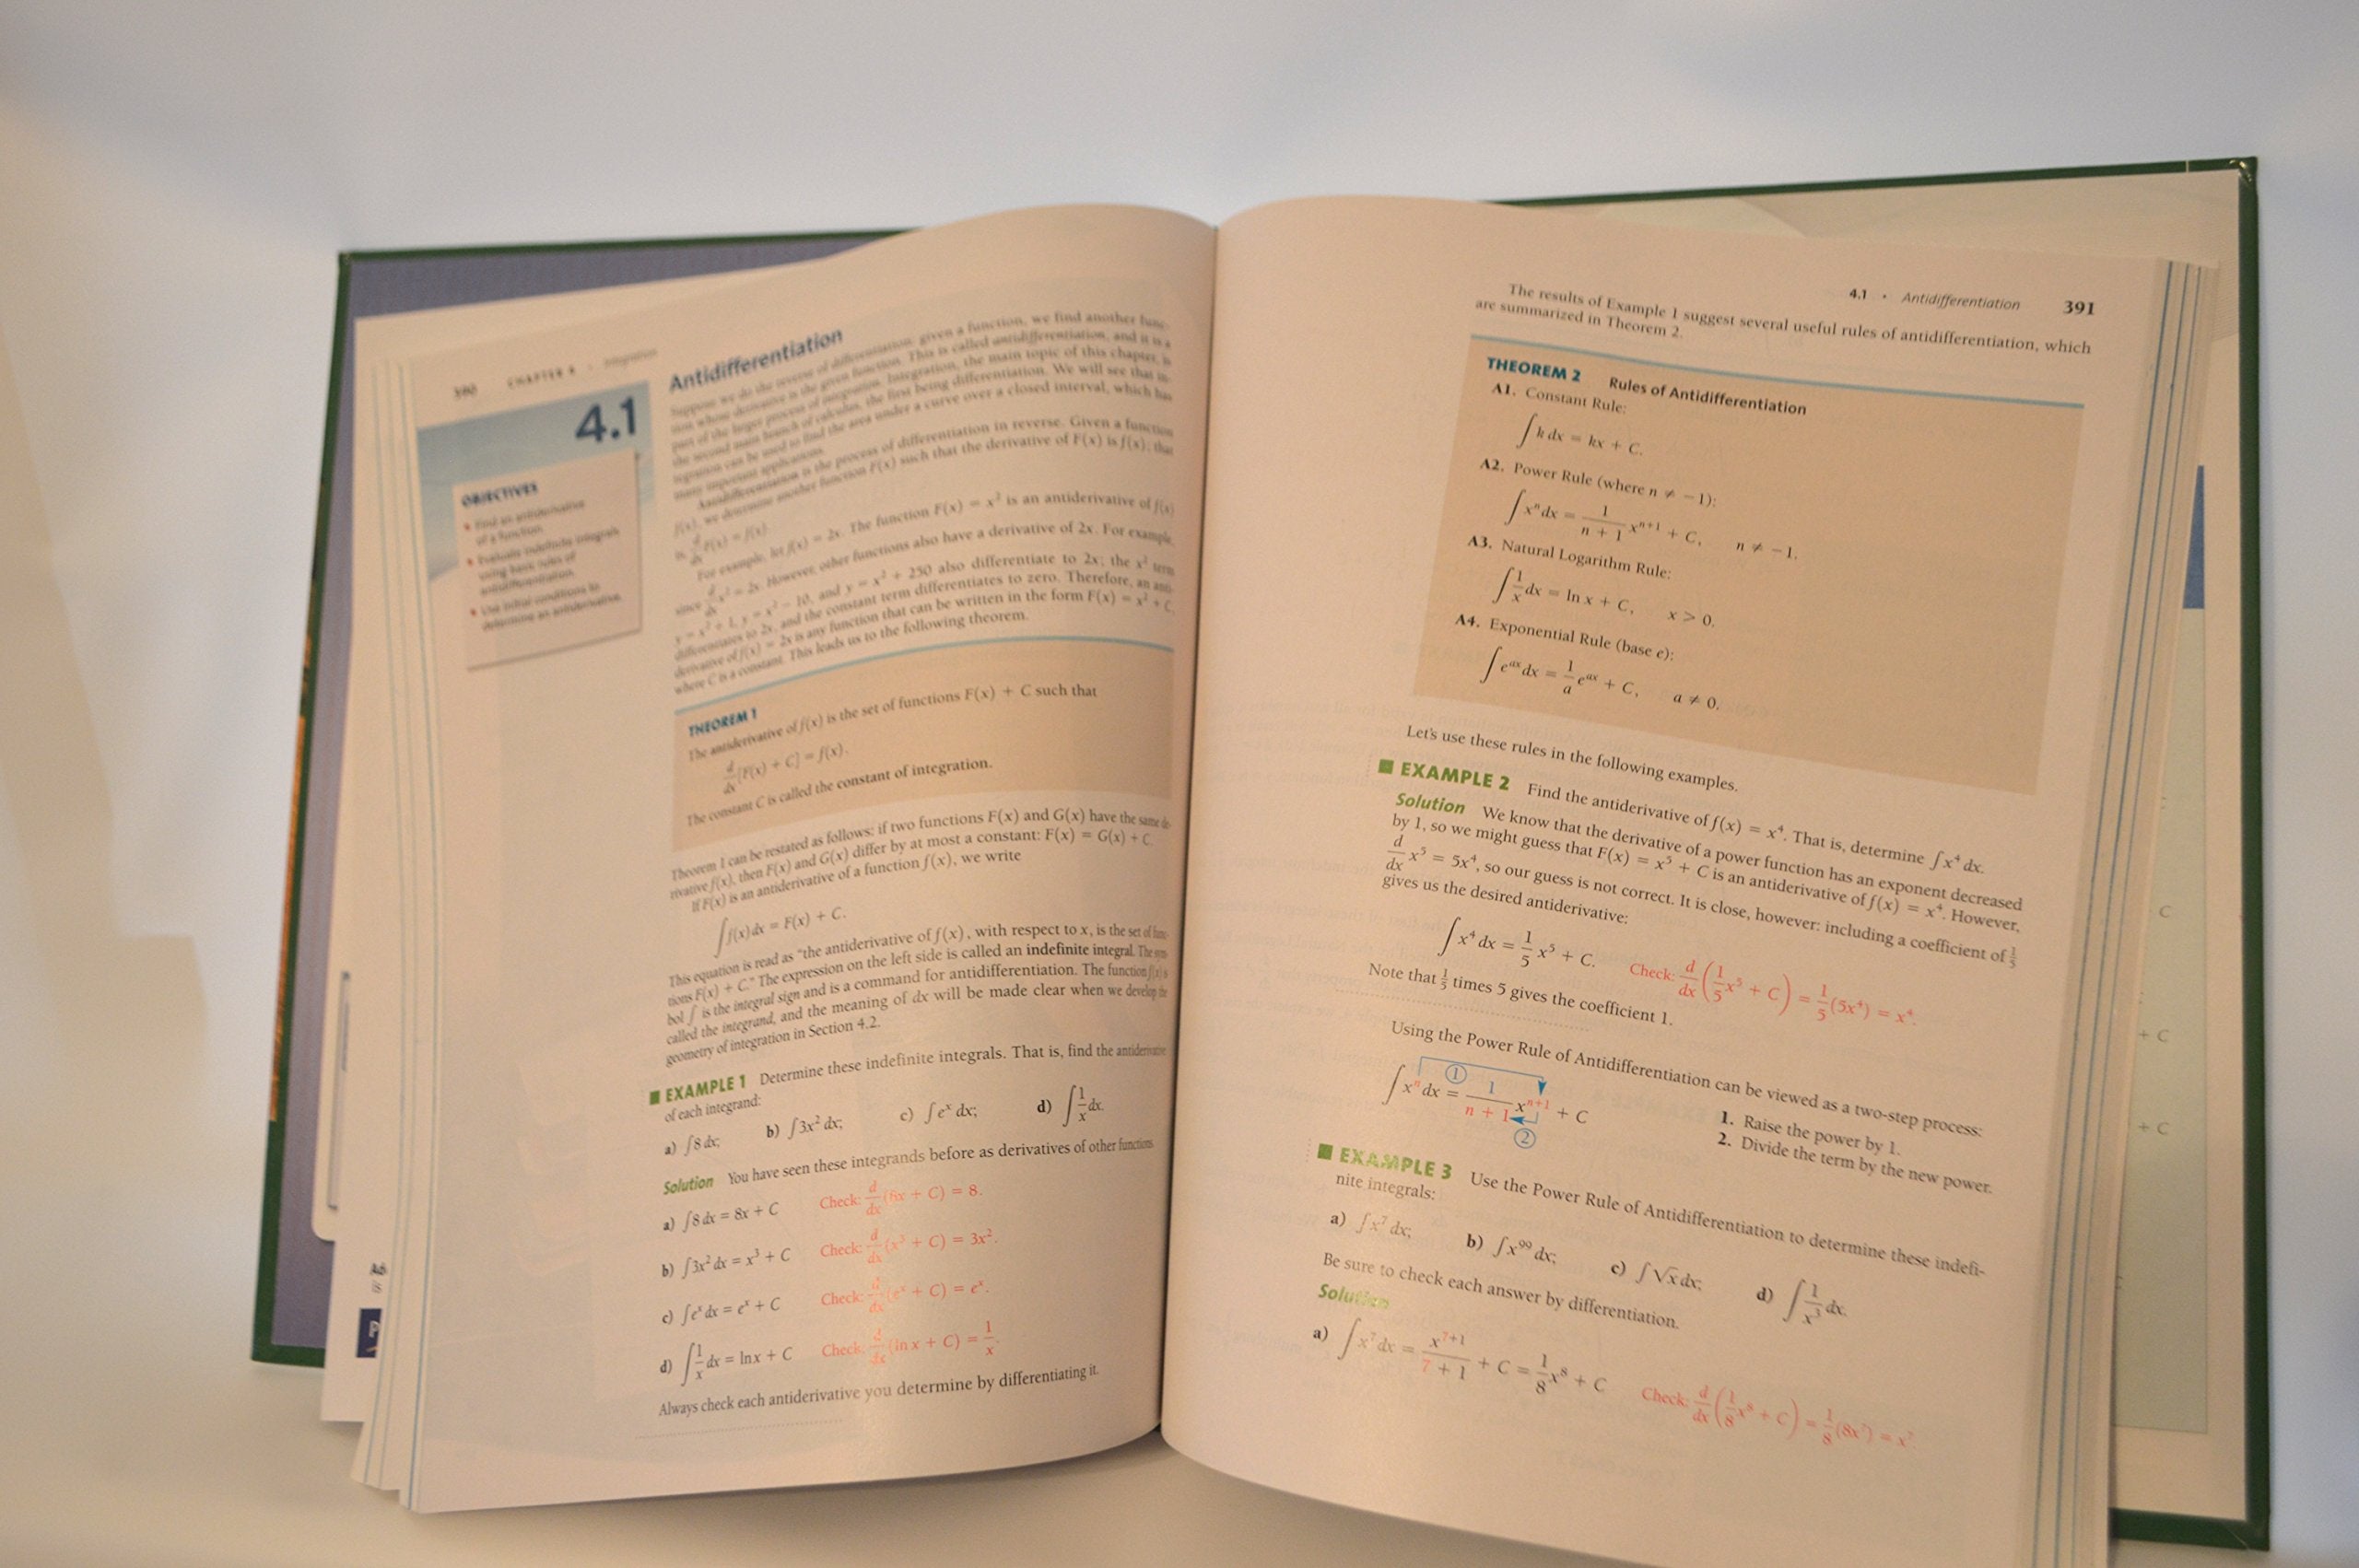 390 CHAPTER 4 • Integration
4.1
OBJECTIVES
• Find an antiderivative
of a function.
• Evaluate indefinite integrals
using basic rules of
antidifferentiation.
• Use initial conditions to
determine an antiderivative.
Antidifferentiation
Suppose we do the reverse of differentiation: given a function, we find another func-
tion whose derivative is the given function. This is called antidifferentiation, and it is a
part of the larger process of integration. Integration, the main topic of this chapter, is
the second main branch of calculus, the first being differentiation. We will see that in-
tegration can be used to find the area under a curve over a closed interval, which has
many important applications.
Antidifferentiation is the process of differentiation in reverse. Given a function
f(x), we determine another function F(x) such that the derivative of F(x) is f(x); that
is, d/dx F(x) = f(x).
For example, let f(x) = 2x. The function F(x) = x² is an antiderivative of f(x)
since d/dx x² = 2x. However, other functions also have a derivative of 2x. For example,
y = x² + 1, y = x² − 10, and y = x² + 250 also differentiate to 2x; the x² term
differentiates to 2x, and the constant term differentiates to zero. Therefore, an anti-
derivative of f(x) = 2x is any function that can be written in the form F(x) = x² + C,
where C is a constant. This leads us to the following theorem.
THEOREM 1
The antiderivative of f(x) is the set of functions F(x) + C such that
d/dx [F(x) + C] = f(x).
The constant C is called the constant of integration.
Theorem 1 can be restated as follows: if two functions F(x) and G(x) have the same de-
rivative f(x), then F(x) and G(x) differ by at most a constant: F(x) = G(x) + C.
If F(x) is an antiderivative of a function f(x), we write
∫f(x) dx = F(x) + C.
This equation is read as "the antiderivative of f(x), with respect to x, is the set of func-
tions F(x) + C." The expression on the left side is called an indefinite integral. The sym-
bol ∫ is the integral sign and is a command for antidifferentiation. The function f(x) is
called the integrand, and the meaning of dx will be made clear when we develop the
geometry of integration in Section 4.2.
■ EXAMPLE 1 Determine these indefinite integrals. That is, find the antiderivative
of each integrand:
a) ∫8 dx; b) ∫3x² dx; c) ∫eˣ dx; d) ∫1/x dx.
Solution You have seen these integrands before as derivatives of other functions.
a) ∫8 dx = 8x + C Check: d/dx (8x + C) = 8.
b) ∫3x² dx = x³ + C Check: d/dx (x³ + C) = 3x².
c) ∫eˣ dx = eˣ + C Check: d/dx (eˣ + C) = eˣ.
d) ∫1/x dx = ln x + C Check: d/dx (ln x + C) = 1/x.
Always check each antiderivative you determine by differentiating it.
4.1 • Antidifferentiation 391
The results of Example 1 suggest several useful rules of antidifferentiation, which
are summarized in Theorem 2.
THEOREM 2 Rules of Antidifferentiation
A1. Constant Rule:
∫k dx = kx + C.
A2. Power Rule (where n ≠ −1):
∫xⁿ dx = 1/(n + 1) xⁿ⁺¹ + C, n ≠ −1.
A3. Natural Logarithm Rule:
∫1/x dx = ln x + C, x > 0.
A4. Exponential Rule (base e):
∫e^(ax) dx = 1/a e^(ax) + C, a ≠ 0.
Let's use these rules in the following examples.
■ EXAMPLE 2 Find the antiderivative of f(x) = x⁴. That is, determine ∫x⁴ dx.
Solution We know that the derivative of a power function has an exponent decreased
by 1, so we might guess that F(x) = x⁵ + C is an antiderivative of f(x) = x⁴. However,
d/dx x⁵ = 5x⁴, so our guess is not correct. It is close, however: including a coefficient of 1/5
gives us the desired antiderivative:
∫x⁴ dx = 1/5 x⁵ + C. Check: d/dx (1/5 x⁵ + C) = 1/5 (5x⁴) = x⁴.
Note that 1/5 times 5 gives the coefficient 1.
Using the Power Rule of Antidifferentiation can be viewed as a two-step process:
∫xⁿ dx = 1/(n + 1) xⁿ⁺¹ + C
①
②
1. Raise the power by 1.
2. Divide the term by the new power.
■ EXAMPLE 3 Use the Power Rule of Antidifferentiation to determine these indefi-
nite integrals:
a) ∫x⁷ dx; b) ∫x⁹⁹ dx; c) ∫√x dx; d) ∫1/x³ dx.
Be sure to check each answer by differentiation.
Solution
a) ∫x⁷ dx = x⁷⁺¹/(7 + 1) + C = 1/8 x⁸ + C Check: d/dx (1/8 x⁸ + C) = 1/8 (8x⁷) = x⁷.
C
+ C
+ C